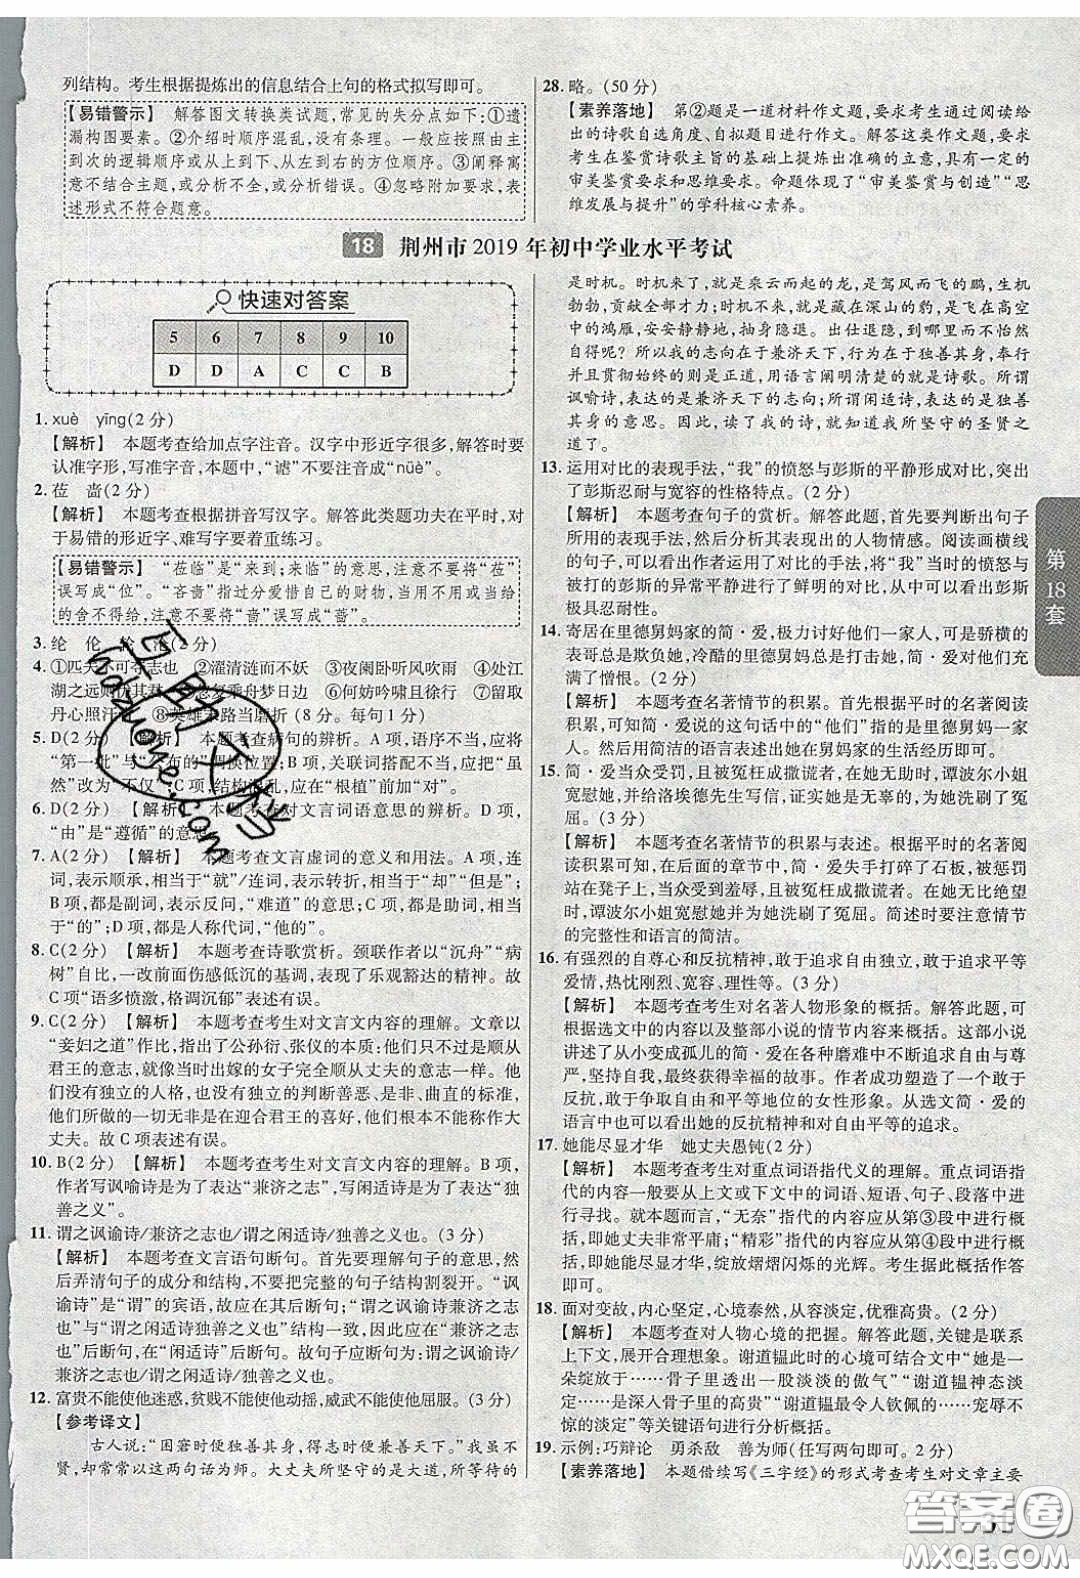 列结构。考生根据提炼出的信息结合上句的格式拟写即可。
【易错警示】 解答图文转换类试题,常见的失分点如下:①遗
漏构图要素。②介绍时顺序混乱,没有条理。一般应按照由主
到次的逻辑顺序或从上到下、从左到右的方位顺序。③阐释寓
意不结合主题,或分析不全,或分析错误。④忽略附加要求,表
述形式不符合题意。
28. 略。(50 分)
【素养落地】 第②题是一道材料作文题,要求考生通过阅读给
出的诗歌自选角度、自拟题目进行作文。解答这类作文题,要求
考生在鉴赏诗歌主旨的基础上提炼出准确的立意,具有一定的
审美鉴赏要求和思维要求。命题体现了“审美鉴赏与创造”“思
维发展与提升”的学科核心素养。
18 荆州市 2019 年初中学业水平考试
快速对答案
5 6 7 8 9 10
D D A C C B
1. xuè yīng(2 分)
【解析】 本题考查给加点字注音。汉字中形近字很多,解答时要
认准字形,写准字音,本题中,“谑”不要注音成“nüè”。
2. 莅 啬(2 分)
【解析】 本题考查根据拼音写汉字。解答此类题功夫在平时,对
于易错的形近字、难写字要着重练习。
【易错警示】 “莅临”是“来到;来临”的意思,注意不要将“莅”
误写成“位”。“吝啬”指过分爱惜自己的财物,当用不用或当给
的舍不得给,注意不要将“啬”误写成“蔷”。
3. 纶 伦 沦(2 分)
4. ①匹夫不可夺志也 ②濯清涟而不妖 ③夜阑卧听风吹雨 ④处江
湖之远则忧其君 忽复乘舟梦日边 ⑥何妨吟啸且徐行 ⑦留取
丹心照汗青 ⑧英雄末路当磨折 (8 分。每句 1 分)
5. D(2 分) 【解析】 本题考查病句的辨析。A 项,语序不当,应将
“第一批”与“公布的”调换位置;B 项,关联词搭配不当,应把“虽
然”改为“不仅”;C 项,结构混乱,应在“根植”前加“对”。
6. D(2 分) 【解析】 本题考查对文言词语意思的辨析。D 项,
“由”是“遵循”的意思。
7. A(2 分) 【解析】 本题考查文言虚词的意义和用法。A 项,连
词,表示顺承,相当于“就”/连词,表示转折,相当于“却”“但是”;
B 项,都是副词,表示反问,“难道”的意思;C 项,都是介词,相当
于“在”;D 项,都是人称代词,“他的”。
8. C(2 分) 【解析】 本题考查诗歌赏析。颈联作者以“沉舟”“病
树”自比,一改前面伤感低沉的基调,表现了乐观豁达的精神。故
C 项“语多愤激,格调沉郁”表述有误。
9. C(2 分) 【解析】 本题考查考生对文言文内容的理解。文章以
“妾妇之道”作比,指出了公孙衍、张仪的实质,指出他们是顺从
君王的意志,就像当时出嫁的女子完全顺从丈夫的意志一样。他
们没有独立的人格,与没有独立的判断善恶、是非、曲直的标准,他
们所做的一切无非是在迎合君王的喜好,他们根本不能称作大
丈夫。故 C 项表述有误。
10. B(2 分) 【解析】 本题考查考生对文言文内容的理解。B 项,
作者写讽喻诗是为了表达“兼济之志”,写闲适诗是为了表达“独
善之义”。
11. 谓之讽谕诗/兼济之志也/谓之闲适诗/独善之义也。(3 分)
【解析】 本题考查文言语句断句。首先要理解句子的意思,然
后弄清句子的成分和结构,不要把完整的句子结构割裂开。“讽
谕诗”是“谓”的宾语,故应在其后断句;“谓之讽谕诗兼济之志
也”与“谓之闲适诗独善之义也”结构一致,因此应在“兼济之志
也”后断句,在“闲适诗”后断句。故句子应断为:谓之讽谕诗/兼
济之志也/谓之闲适诗/独善之义也。
12. 富贵不能使他迷惑,贫贱不能使他动摇,威武不能使他屈服。(3 分)
【参考译文】
古人说:“困窘时便独善其身,得志时便兼善天下。”我虽不
贤,却常常以这两句话为师。大丈夫所坚守的是大道,所等待的
是时机。时机来了,就是乘云而起的龙,是驾风而飞的鹏,生机
勃勃,贡献全部才力;时机不来,就是藏在深山的豹,是高在高空
中的鸿雁,安安静静地,抽身隐退。出仕退隐,到哪里而不怡然
自得呢?所以我的志向在于兼济天下,行为在于独善其身,奉行
并且贯彻始终的则是正道,用语言阐明清楚的就是诗歌。所谓
讽喻诗,表达的是兼济天下的志向;所谓闲适诗,表达的是独善
其身的意思。因此,读了我的诗,就知道我所坚守的圣贤之
道了。
13. 运用对比的表现手法,“我”的愤怒与彭斯的平静形成对比,突出
了彭斯忍耐与宽容的性格特点。(2 分)
【解析】 本题考查句子的赏析。解答此题,首先要判断出句子
所用的表现手法,然后分析其表现出的人物情感。阅读画横线
的句子,可以看出作者运用了对比的手法,将“我”当时的愤怒与
被打的彭斯的异常平静进行了鲜明的对比,可以看出彭斯
极具忍耐性。
14. 寄居在里德舅妈家的简·爱,极力讨好他们一家人,可是骄横的
表哥总是欺负她,冷酷的里德舅妈总是打击她,简·爱对他们充
满了憎恨。(2 分)
【解析】 本题考查名著情节的积累。首先根据平时的名著阅读
积累,可以知道,简·爱说的这句话中的“他们”指的是里德舅妈一家
人。然后用简洁的语言表述出她在舅妈家的生活经历即可。
15. 简·爱当众受罚,且被冤枉成撒谎者,在她无助时,谭波尔小姐
宽慰她,并给洛埃德先生写信,证实她是无辜的,为她洗刷了冤
屈。(3 分)
【解析】 本题考查名著情节的积累与表述。根据平时的名著阅
读积累可知,在后面的章节中,简·爱失手打碎了石板,被惩罚
站在凳子上,当众受到羞辱,且被冤枉成撒谎者。在她无比绝望
时,谭波尔小姐宽慰她并为她洗刷了冤屈。简述时要注意情节
的完整性和语言的简洁。
16. 有强烈的自尊心和反抗精神,敢于追求自由独立,敢于追求平等
爱情,热忱刚烈、宽容、理性等。(3 分)
【解析】 本题考查考生对名著人物形象的概括。解答此题,可
根据选文中的内容以及整部小说的情节内容来概括。这部小说
讲述了从小变成孤儿的简·爱在各种磨难中不断追求自由与尊
严,坚持自我,最终获得幸福的故事。作者成功塑造了一个敢于
反抗,敢于争取自由和平等地位的女性形象。从选文简·爱的
语言中也可以看出她的反抗精神和对自由平等的追求。
17. 她能尽显才华 她丈夫愚钝(2 分)
【解析】 本题考查考生对重点词语指代义的理解。重点词语指
代的内容一般要从上文或下文中的词语、短语、句子、段落中进行概
括。就本题而言,“无奈”指代的内容应从第③段中进行概
括,即她丈夫非常平庸;“精彩”指代的内容应从第④段中概括,
即她尽显才华,绽放熠熠闪烁的光辉。考生据此概括作答
即可。
18. 面对变故,内心坚定,心境泰然,从容淡定,优雅高贵。(2 分)
【解析】 本题考查对人物心境的把握。解答此题,关键是联系
上下文,展开合理想象。谢道韫此时的心境可结合文中“她是
一朵绽放……骨子里透出一股淡淡的傲气”“谢道韫神态淡
定……骨子里透出高贵”“谢道韫最令人钦佩的……宠辱不
惊的淡定”等关键语句进行分析概括。
19. 示例:巧辩论 勇杀敌 善为师(任写两句即可。2 分)
【素养落地】 本题借续写《三字经》的形式考查考生对文章主要
第
18
套
答案圈
MXQE.COM